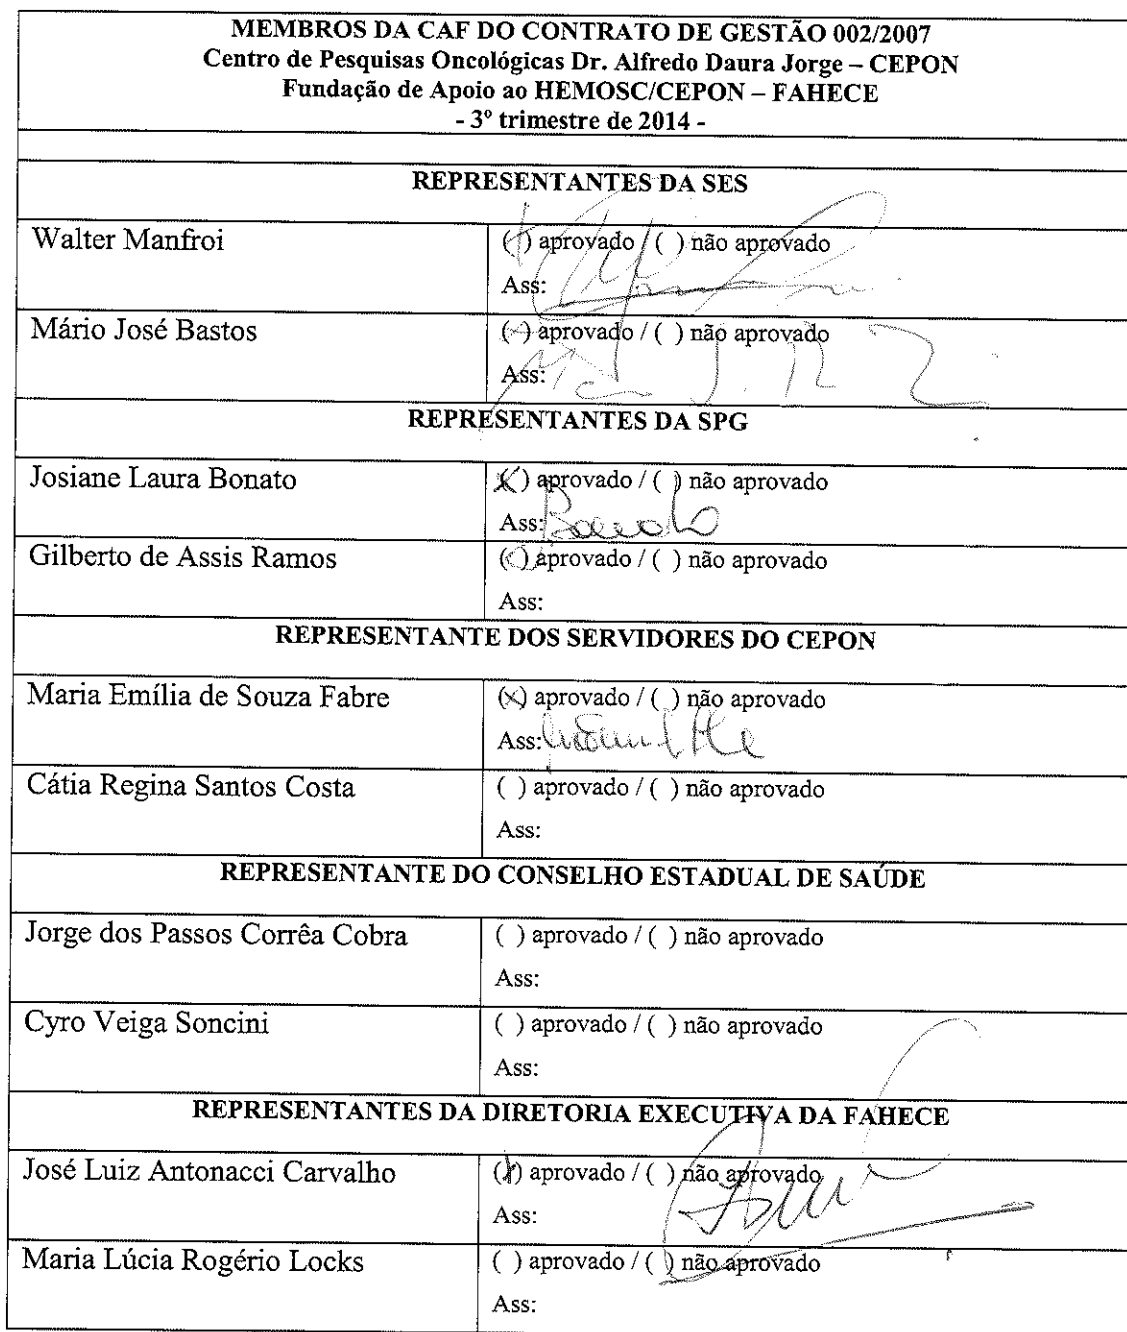 MEMBROS DA CAF DO CONTRATO DE GESTÃO 002/2007
Centro de Pesquisas Oncológicas Dr. Alfredo Daura Jorge – CEPON
Fundação de Apoio ao HEMOSC/CEPON – FAHECE
- 3º trimestre de 2014 -
REPRESENTANTES DA SES
Walter Manfroi
(X) aprovado / ( ) não aprovado
Ass:
Mário José Bastos
(X) aprovado / ( ) não aprovado
Ass:
REPRESENTANTES DA SPG
Josiane Laura Bonato
(X) aprovado / ( ) não aprovado
Ass: Bonato
Gilberto de Assis Ramos
( ) aprovado / ( ) não aprovado
Ass:
REPRESENTANTE DOS SERVIDORES DO CEPON
Maria Emília de Souza Fabre
(x) aprovado / ( ) não aprovado
Ass:
Cátia Regina Santos Costa
( ) aprovado / ( ) não aprovado
Ass:
REPRESENTANTE DO CONSELHO ESTADUAL DE SAÚDE
Jorge dos Passos Corrêa Cobra
( ) aprovado / ( ) não aprovado
Ass:
Cyro Veiga Soncini
( ) aprovado / ( ) não aprovado
Ass:
REPRESENTANTES DA DIRETORIA EXECUTIVA DA FAHECE
José Luiz Antonacci Carvalho
(X) aprovado / ( ) não aprovado
Ass:
Maria Lúcia Rogério Locks
( ) aprovado / ( ) não aprovado
Ass: